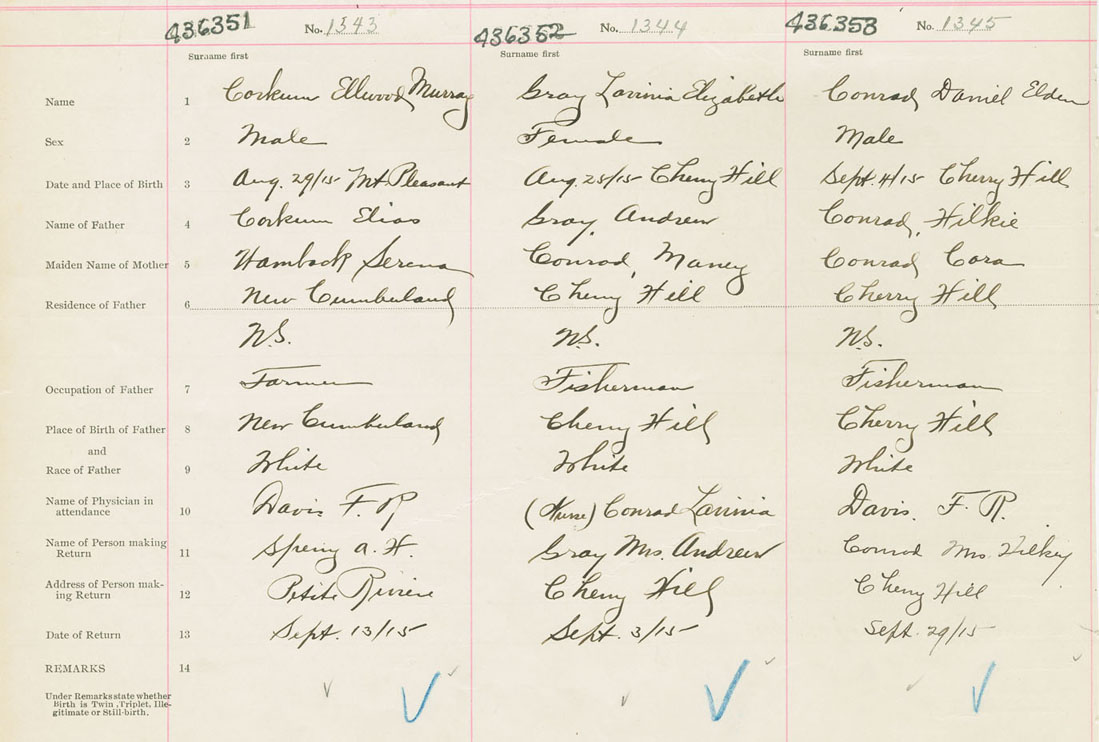 436351 No. 1343 436352 No. 1344 436353 No. 1345
Surname first Surname first Surname first
Name 1 Corkum Ellwood Murray Gray Lavinia Elizabeth Conrad Daniel Elden
Sex 2 Male Female Male
Date and Place of Birth 3 Aug. 29/15 Mt Pleasant Aug. 25/15 Cherry Hill Sept. 4/15 Cherry Hill
Name of Father 4 Corkum Elias Gray, Andrew Conrad, Hilkie
Maiden Name of Mother 5 Serena Conrad, Conrad Cora
Residence of Father 6 New Cumberland Cherry Hill Cherry Hill
N.S. N.S. N.S.
Occupation of Father 7 Farmer Fisherman Fisherman
Place of Birth of Father 8 New Cumberland Cherry Hill Cherry Hill
and
Race of Father 9 White White White
Name of Physician in
attendance 10 Davis F. R (Nurse) Conrad Lavinia Davis. F. R.
Name of Person making
Return 11 A. H. Gray Mrs. Andrew Conrad Mrs. Hilkey
Address of Person mak-
ing Return 12 Petite Riviere Cherry Hill Cherry Hill
Date of Return 13 Sept. 13/15 Sept. 3/15 Sept. 29/15
REMARKS 14
Under Remarks state whether
Birth is Twin, Triplet, Ille-
gitimate or Still-birth.